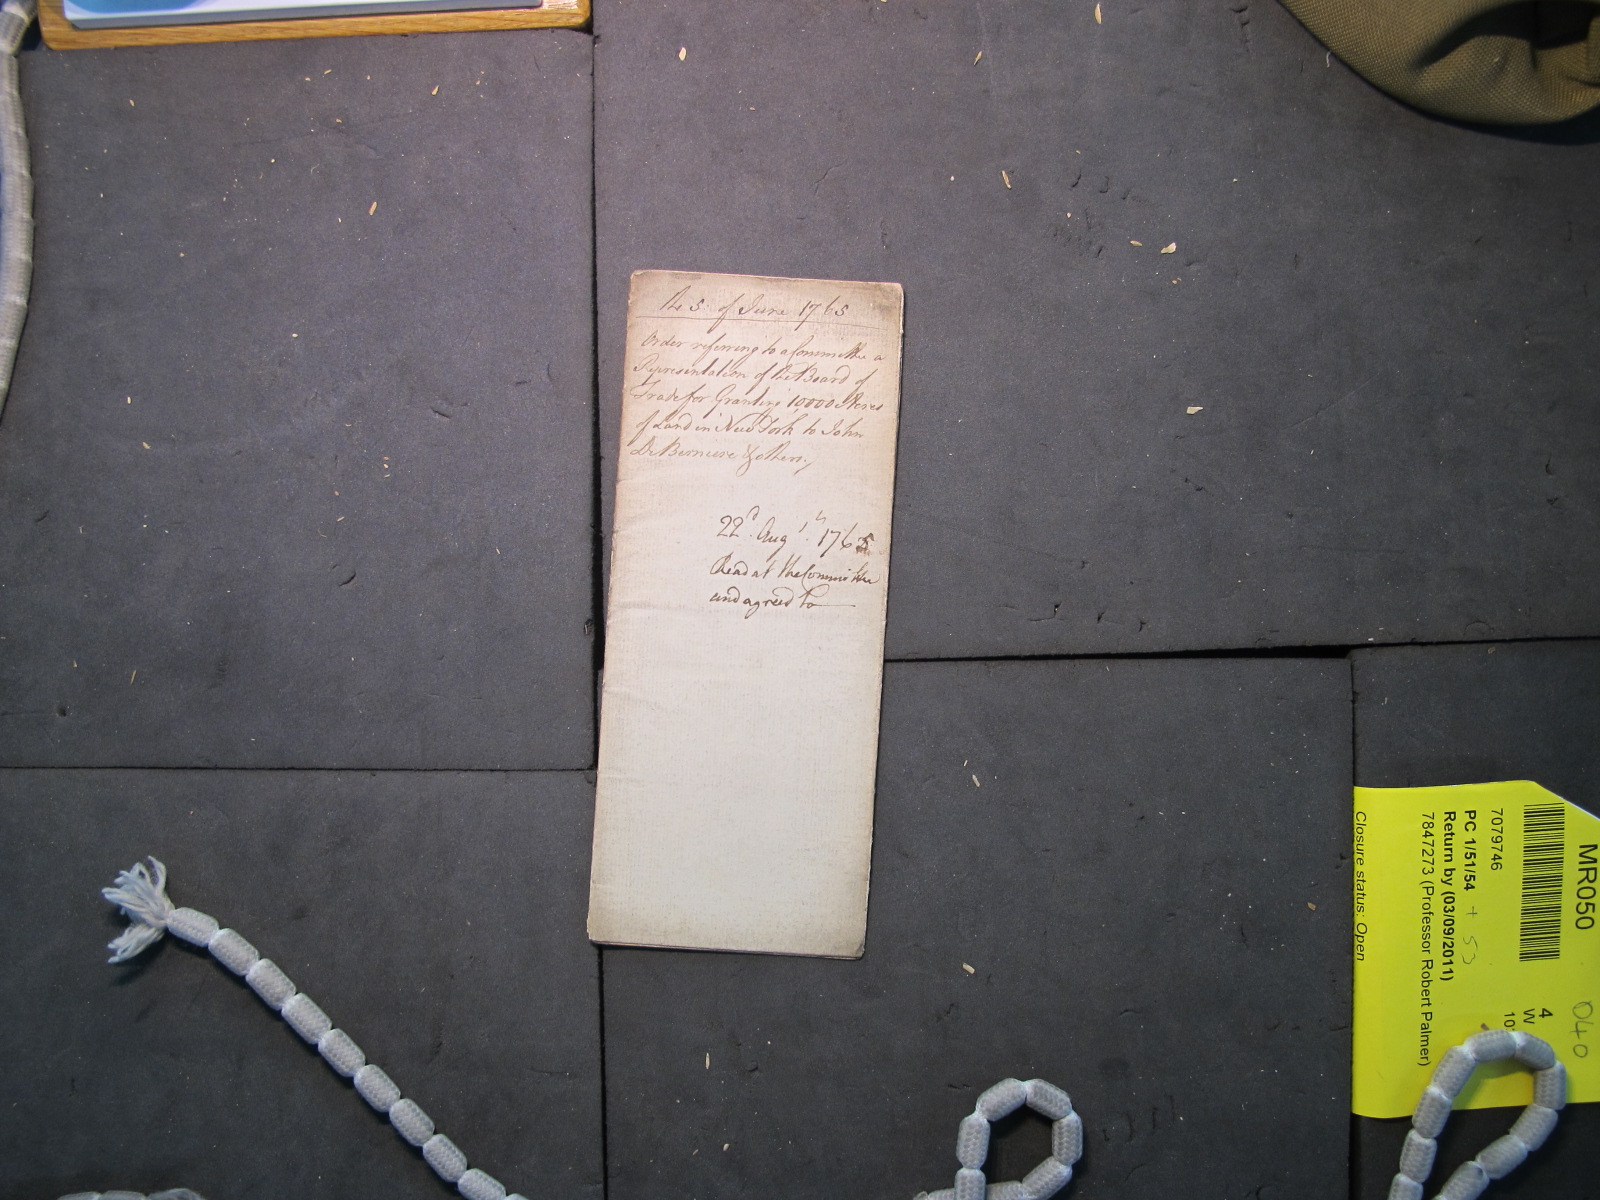 The 5th of June 1765
Order referring to a Committee a
Representation of the Board of
Trade for Granting 10,000 Acres
of Land in New York to John
De Berniere & others./
22d. Augst. 1765
Read at the Committee
and agreed to
MR050
040
7079746
4
W
PC 1/51/54 + 53
Return by (03/09/2011)
7847273 (Professor Robert Palmer)
Closure status: Open